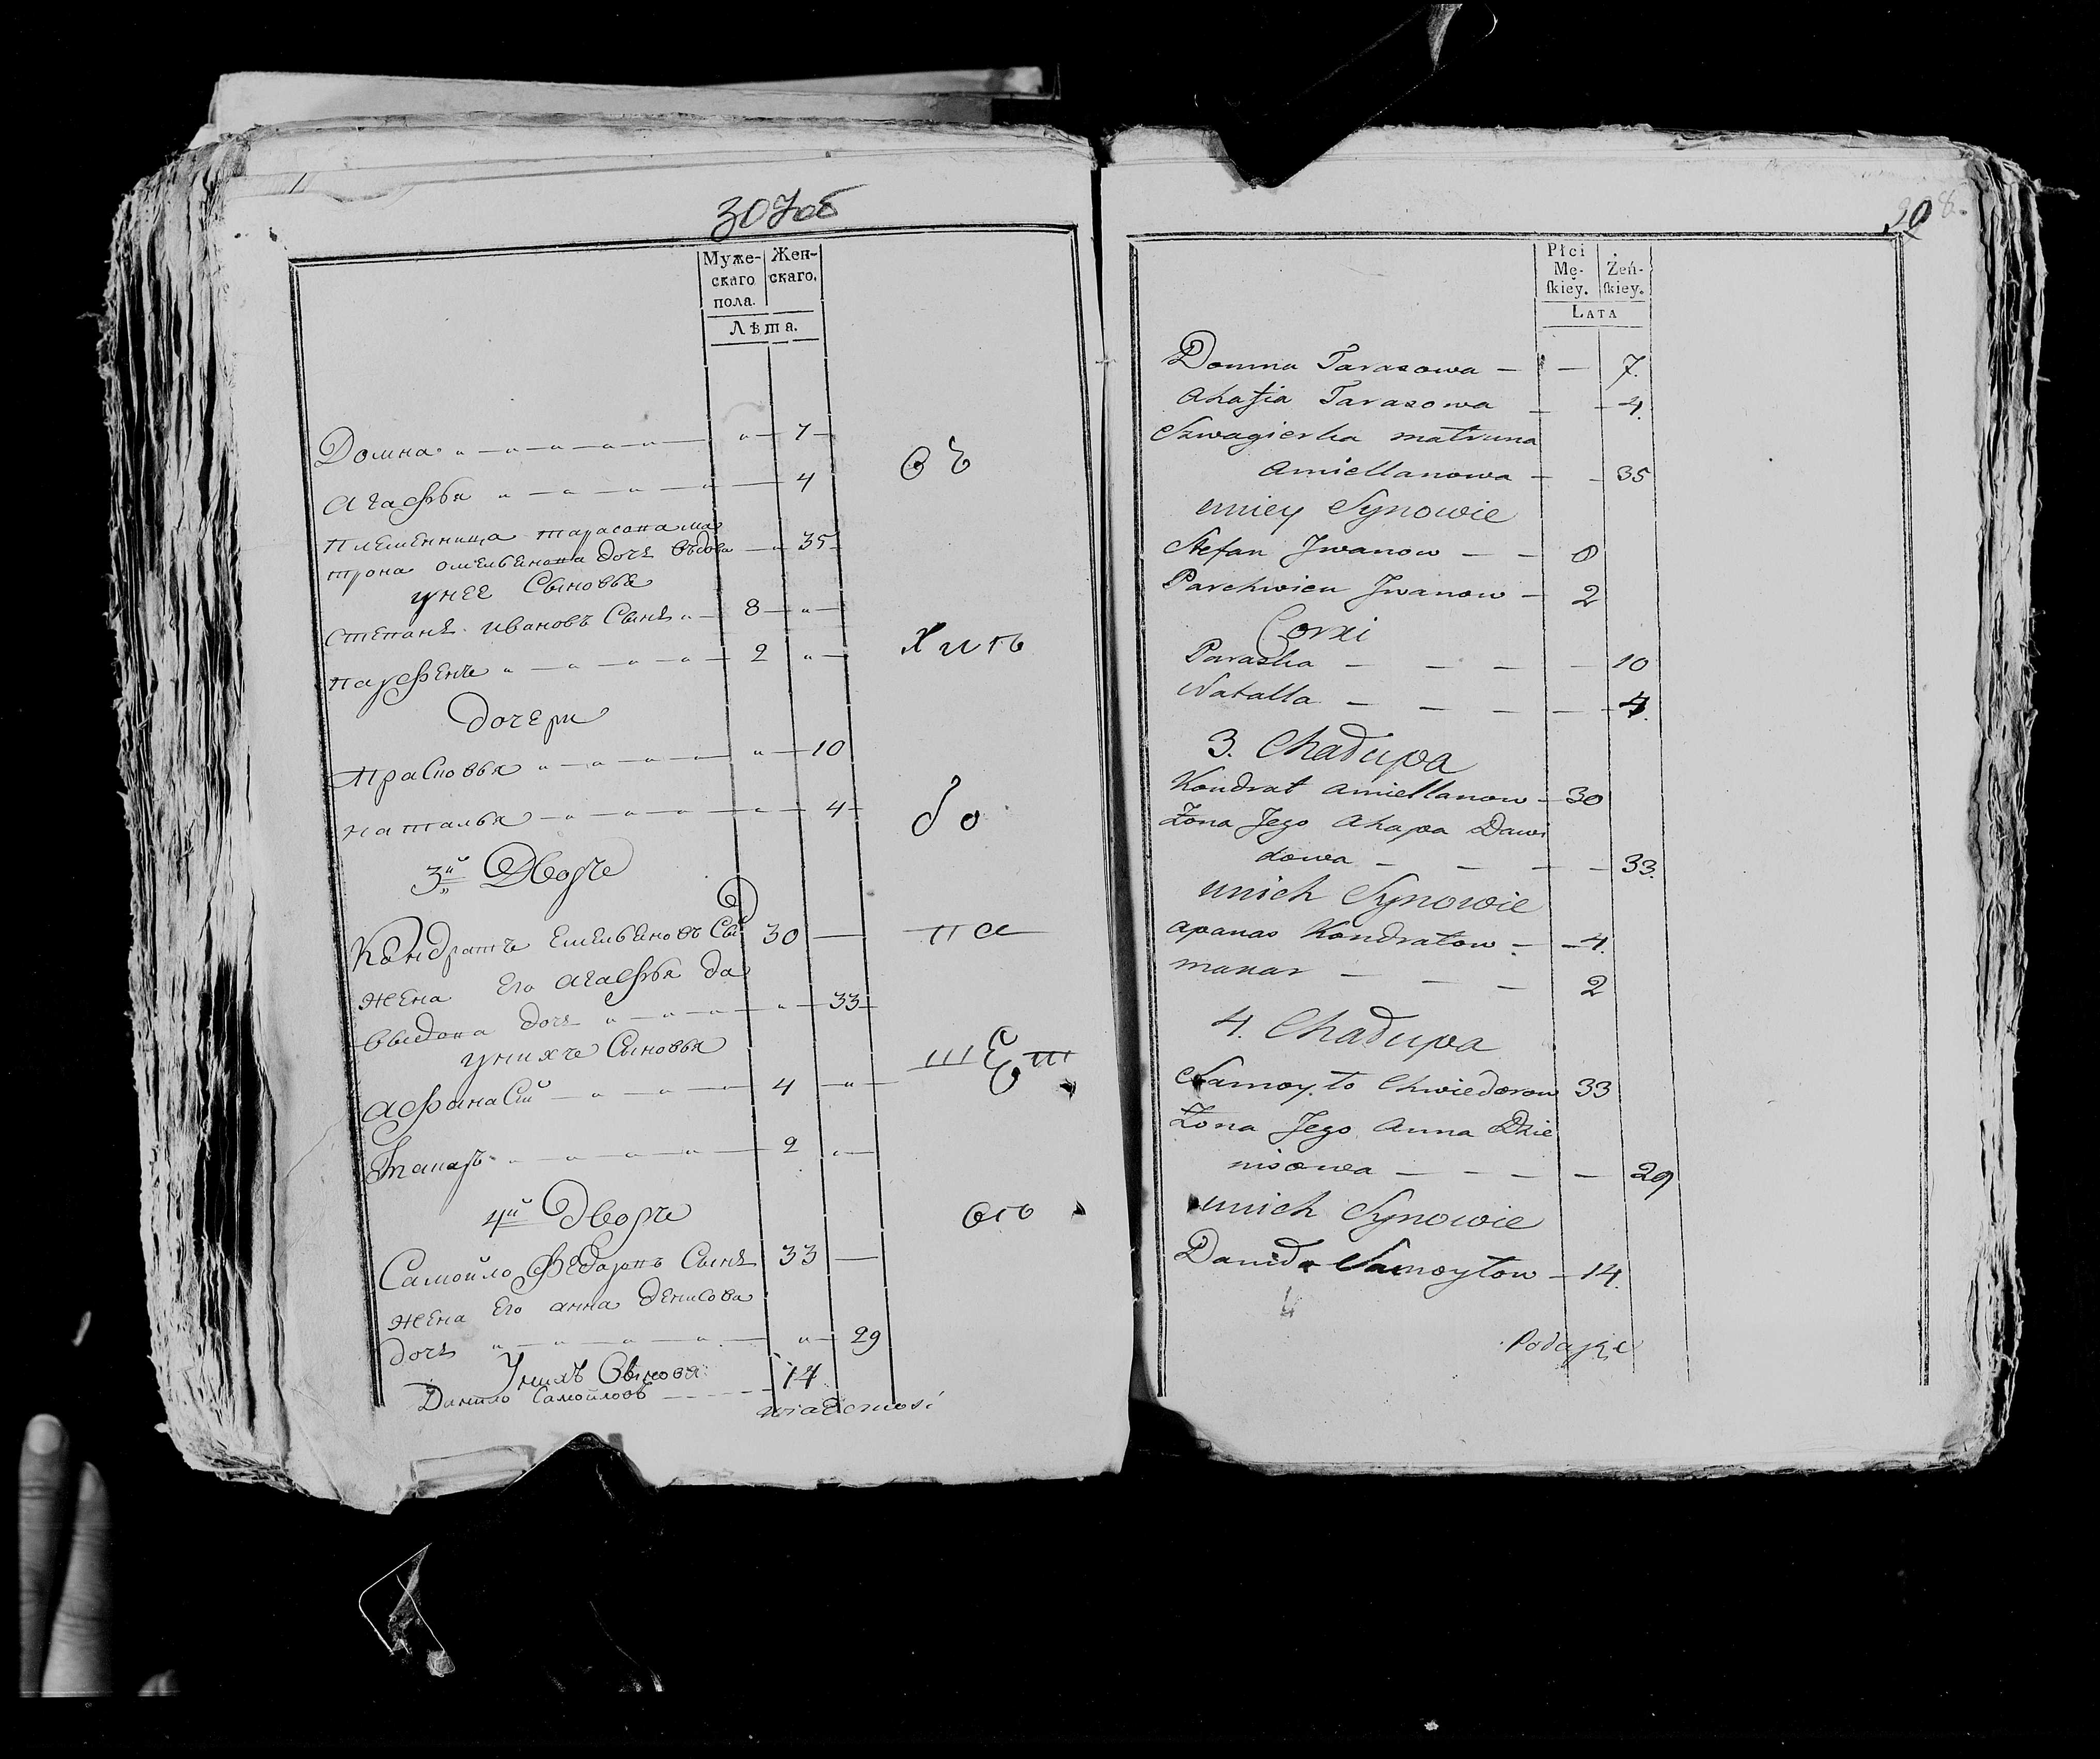 307об
Муже-
скаго
пола.
Жен-
скаго.
Лѣта.
Домна 7
Агафья 4
Племенница тарасова ма
трона омельянова дочь вдова 35
унее Сыновья
Степанъ ивановъ Сынъ 8
парфенъ 2
дочери
прасковья 10
наталья 4
3й Дворъ
Кондратъ Емельяновъ Сынъ 30
жена Его агафья да
выдова дочь 33
унихъ Сыновья
Афанасий 4
2
4й Дворъ
Самойло Федоровъ Сынъ 33
жена Его анна денисова
дочь 29
Унихъ Сыновья
Данило Самойловъ 14
въ
хъ
до
па
шеш
ого
wiadomosi
308.
Płci
Mę-
ſkiey.
Żeń-
ſkiey.
LATA
Domna Tarasowa — — 7.
Ahafia Tarasowa — 4.
Szwagierka matruna
Amiellanowa — 35
uniey Synowie
Stefan Jwanow — — 8
Parchwien Jwanow — 2
Corki
Paraska — — — — 10
Natalla — — — — 4.
3. Chadupa
Kondrat Amiellanow — 30
Żona Jego Ahapa Dawi
dowa — — — — 33.
unich Synowie
Apanas Kondratow — 4.
makar — — — 2
4. Chadupa
Samoyło Chwiedorow 33
Żona Jego Anna Dzie
nisowa — — — — 29
unich Synowie
Daniło Samoyłow — 14.
Podające